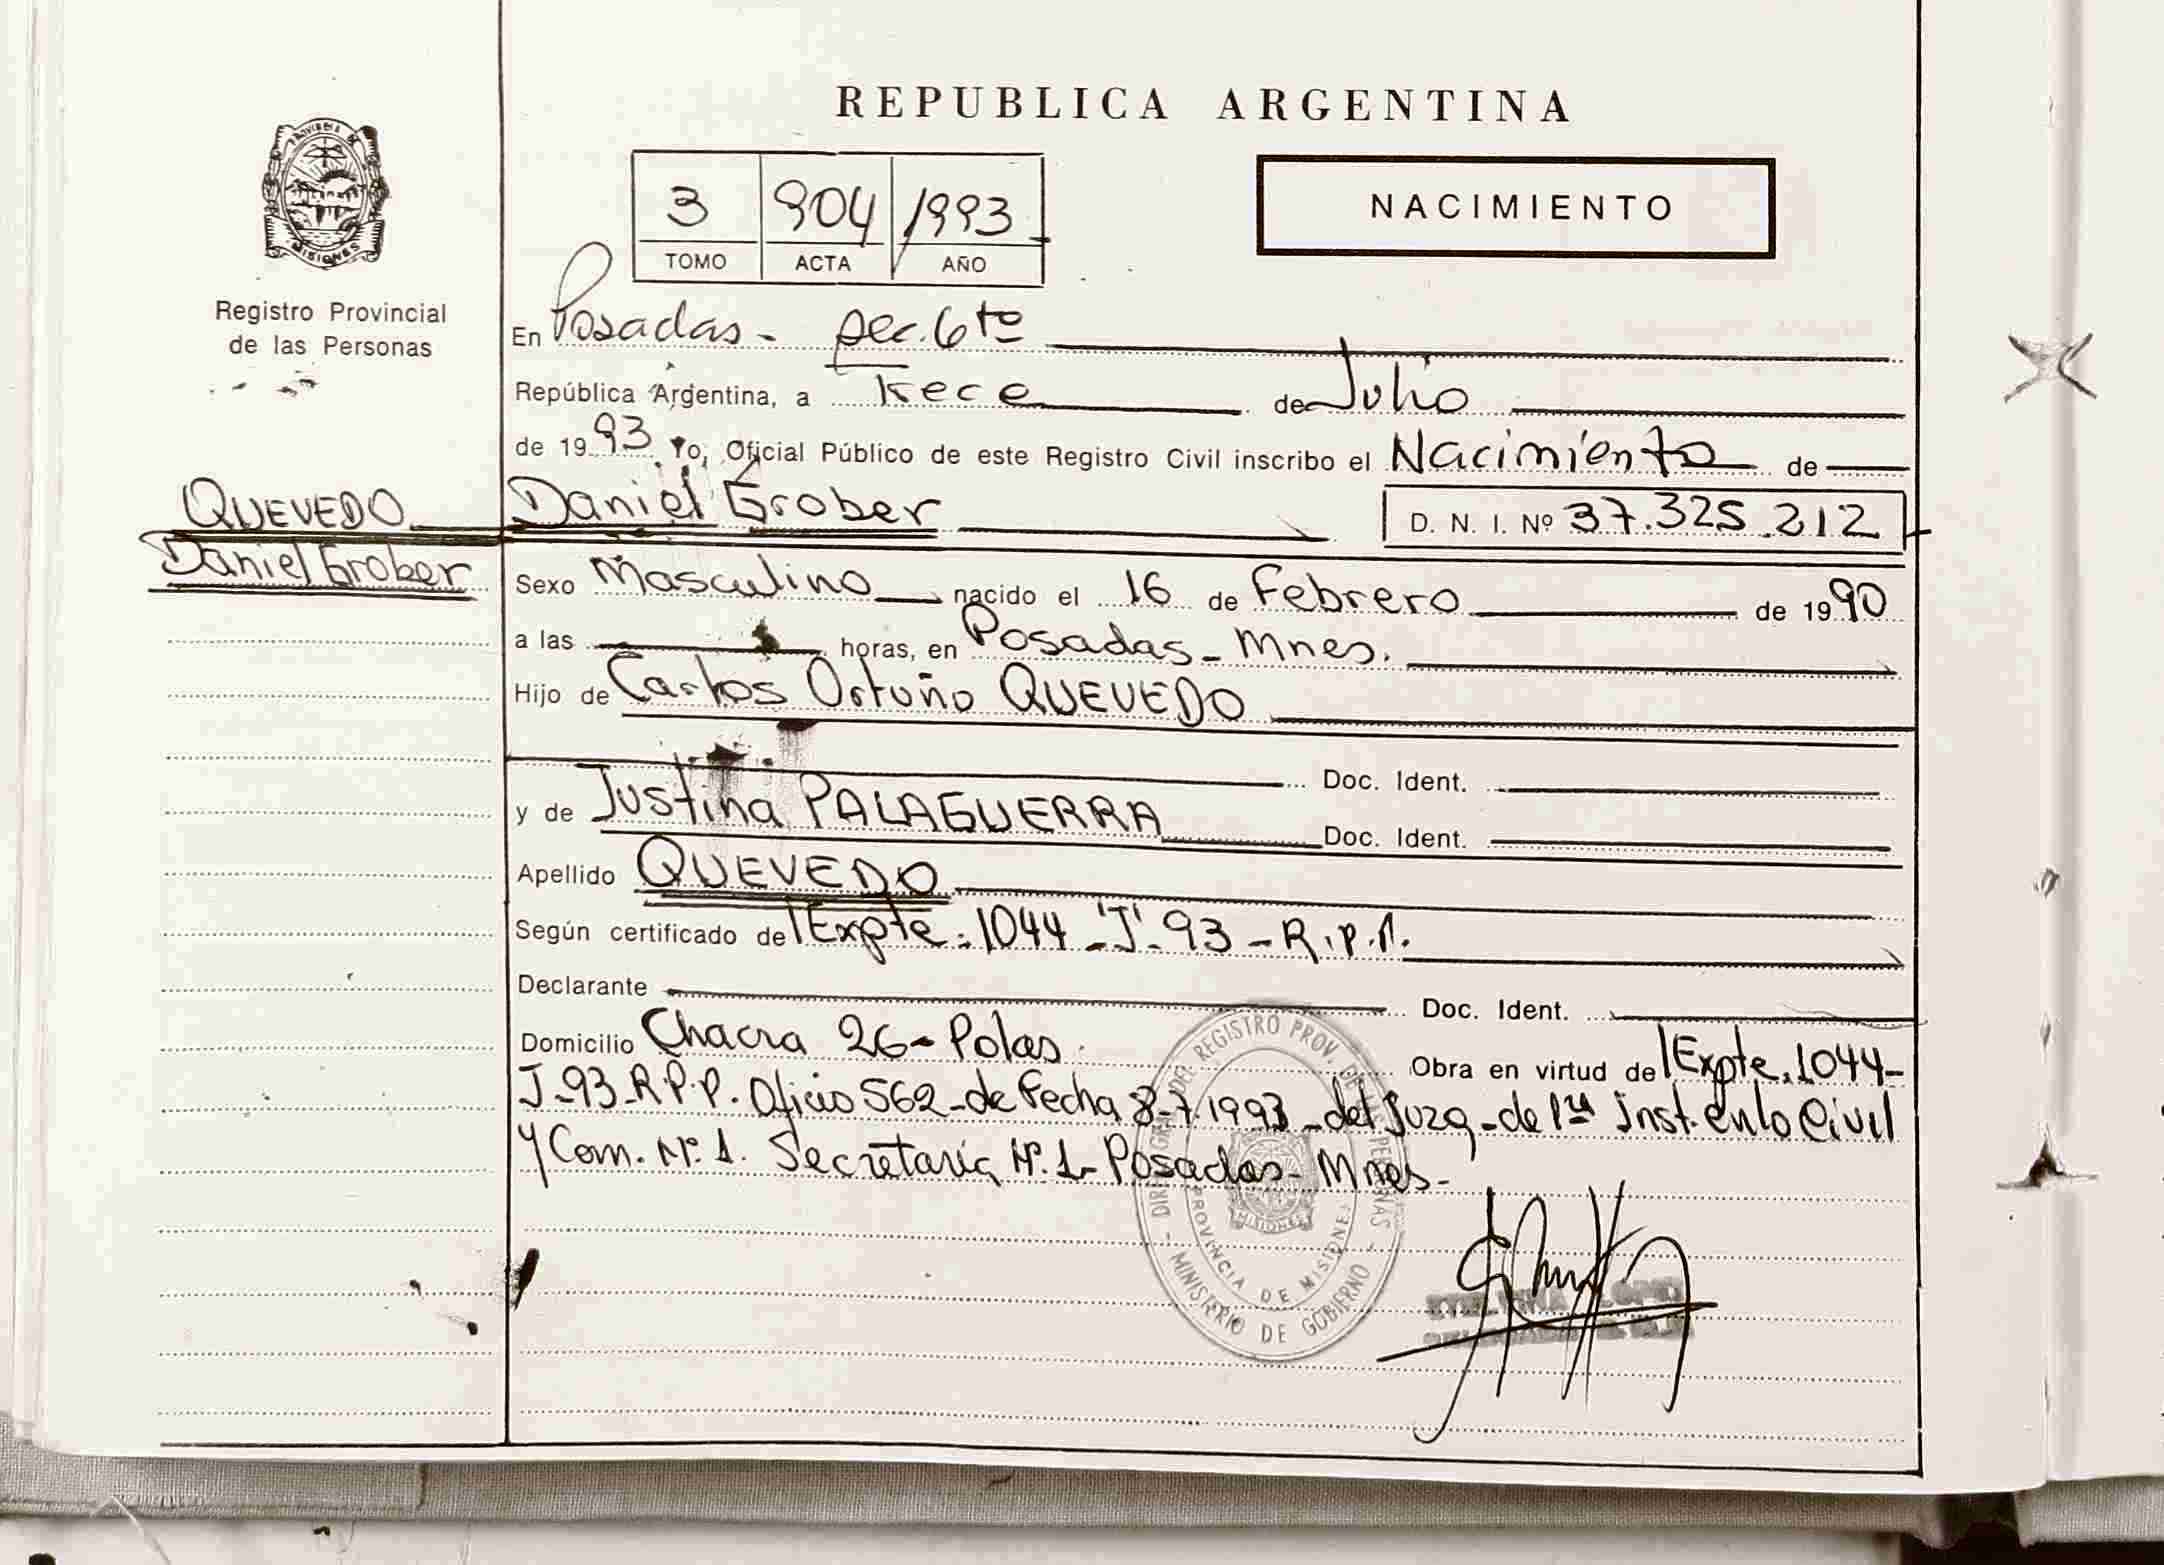 REPUBLICA ARGENTINA
PROVINCIA DE
MISIONES
Registro Provincial
de las Personas
3 904 1993
TOMO ACTA AÑO
NACIMIENTO
En Posadas - Sec. 6to
República Argentina, a trece de Julio
de 1993. Yo, Oficial Público de este Registro Civil inscribo el Nacimiento de
QUEVEDO
Daniel Grober
Daniel Grober D. N. I. Nº 37.325.212
Sexo Masculino nacido el 16 de Febrero de 1990
a las horas, en Posadas - Mnes.
Hijo de Carlos Ortuño QUEVEDO
Doc. Ident.
y de Justina PALAGUERRA Doc. Ident.
Apellido QUEVEDO
Según certificado de Expte. 1044 - "J" - 93 - R.P.P.
Declarante Doc. Ident.
Domicilio Chacra 26 - Pdas. Obra en virtud de Expte. 1044-
J-93-R.P.P. Oficio 562 - de Fecha 8-7-1993 - del Juzg - de 1ra Inst. en lo Civil
y Com. Nº 1. Secretaría Nº 1 - Posadas - Mnes -
DIR. GRAL. DEL REGISTRO PROV. DE LAS PERSONAS
- MINISTERIO DE GOBIERNO -
PROVINCIA DE MISIONES
MISIONES